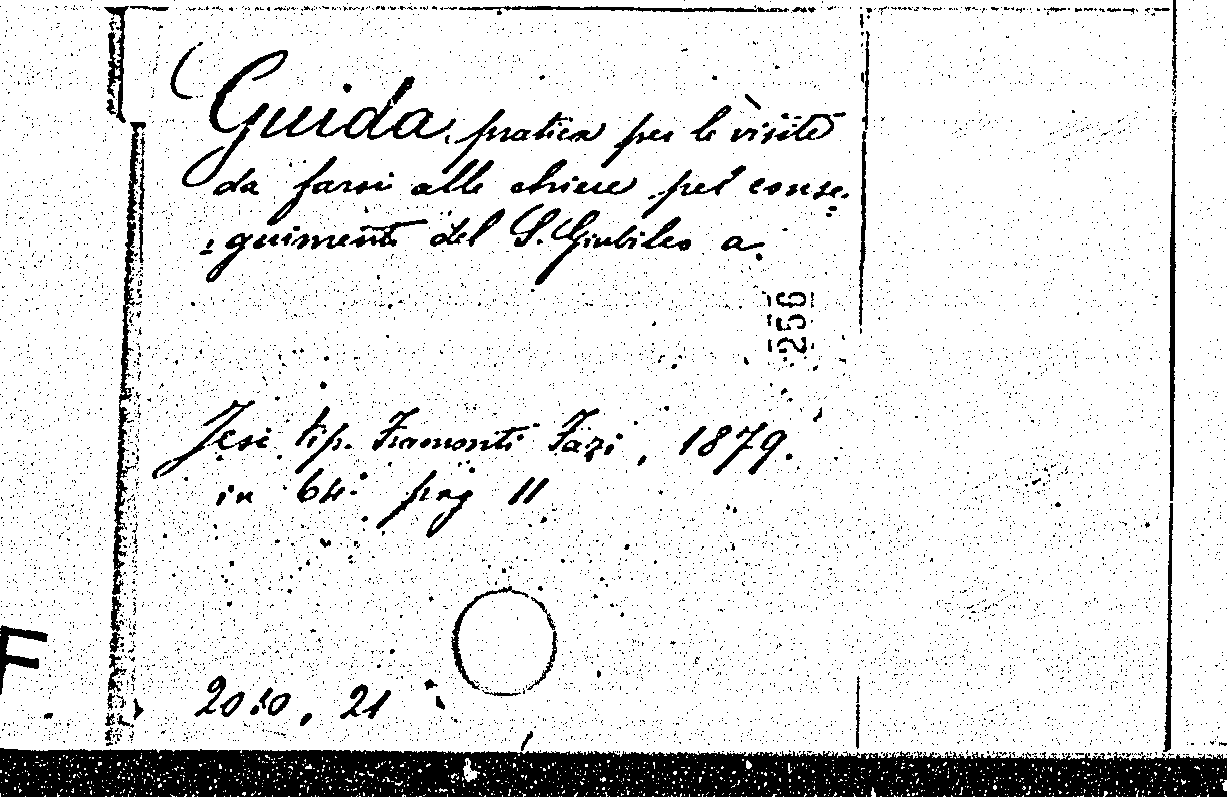 Guida pratica per le visite
da farsi alle chiese pel conse-
guimento del S. Giubileo a.
256
Jesi tip. Framonti Fazi, 1879.
in 64.° pag 11
20.10.21
F